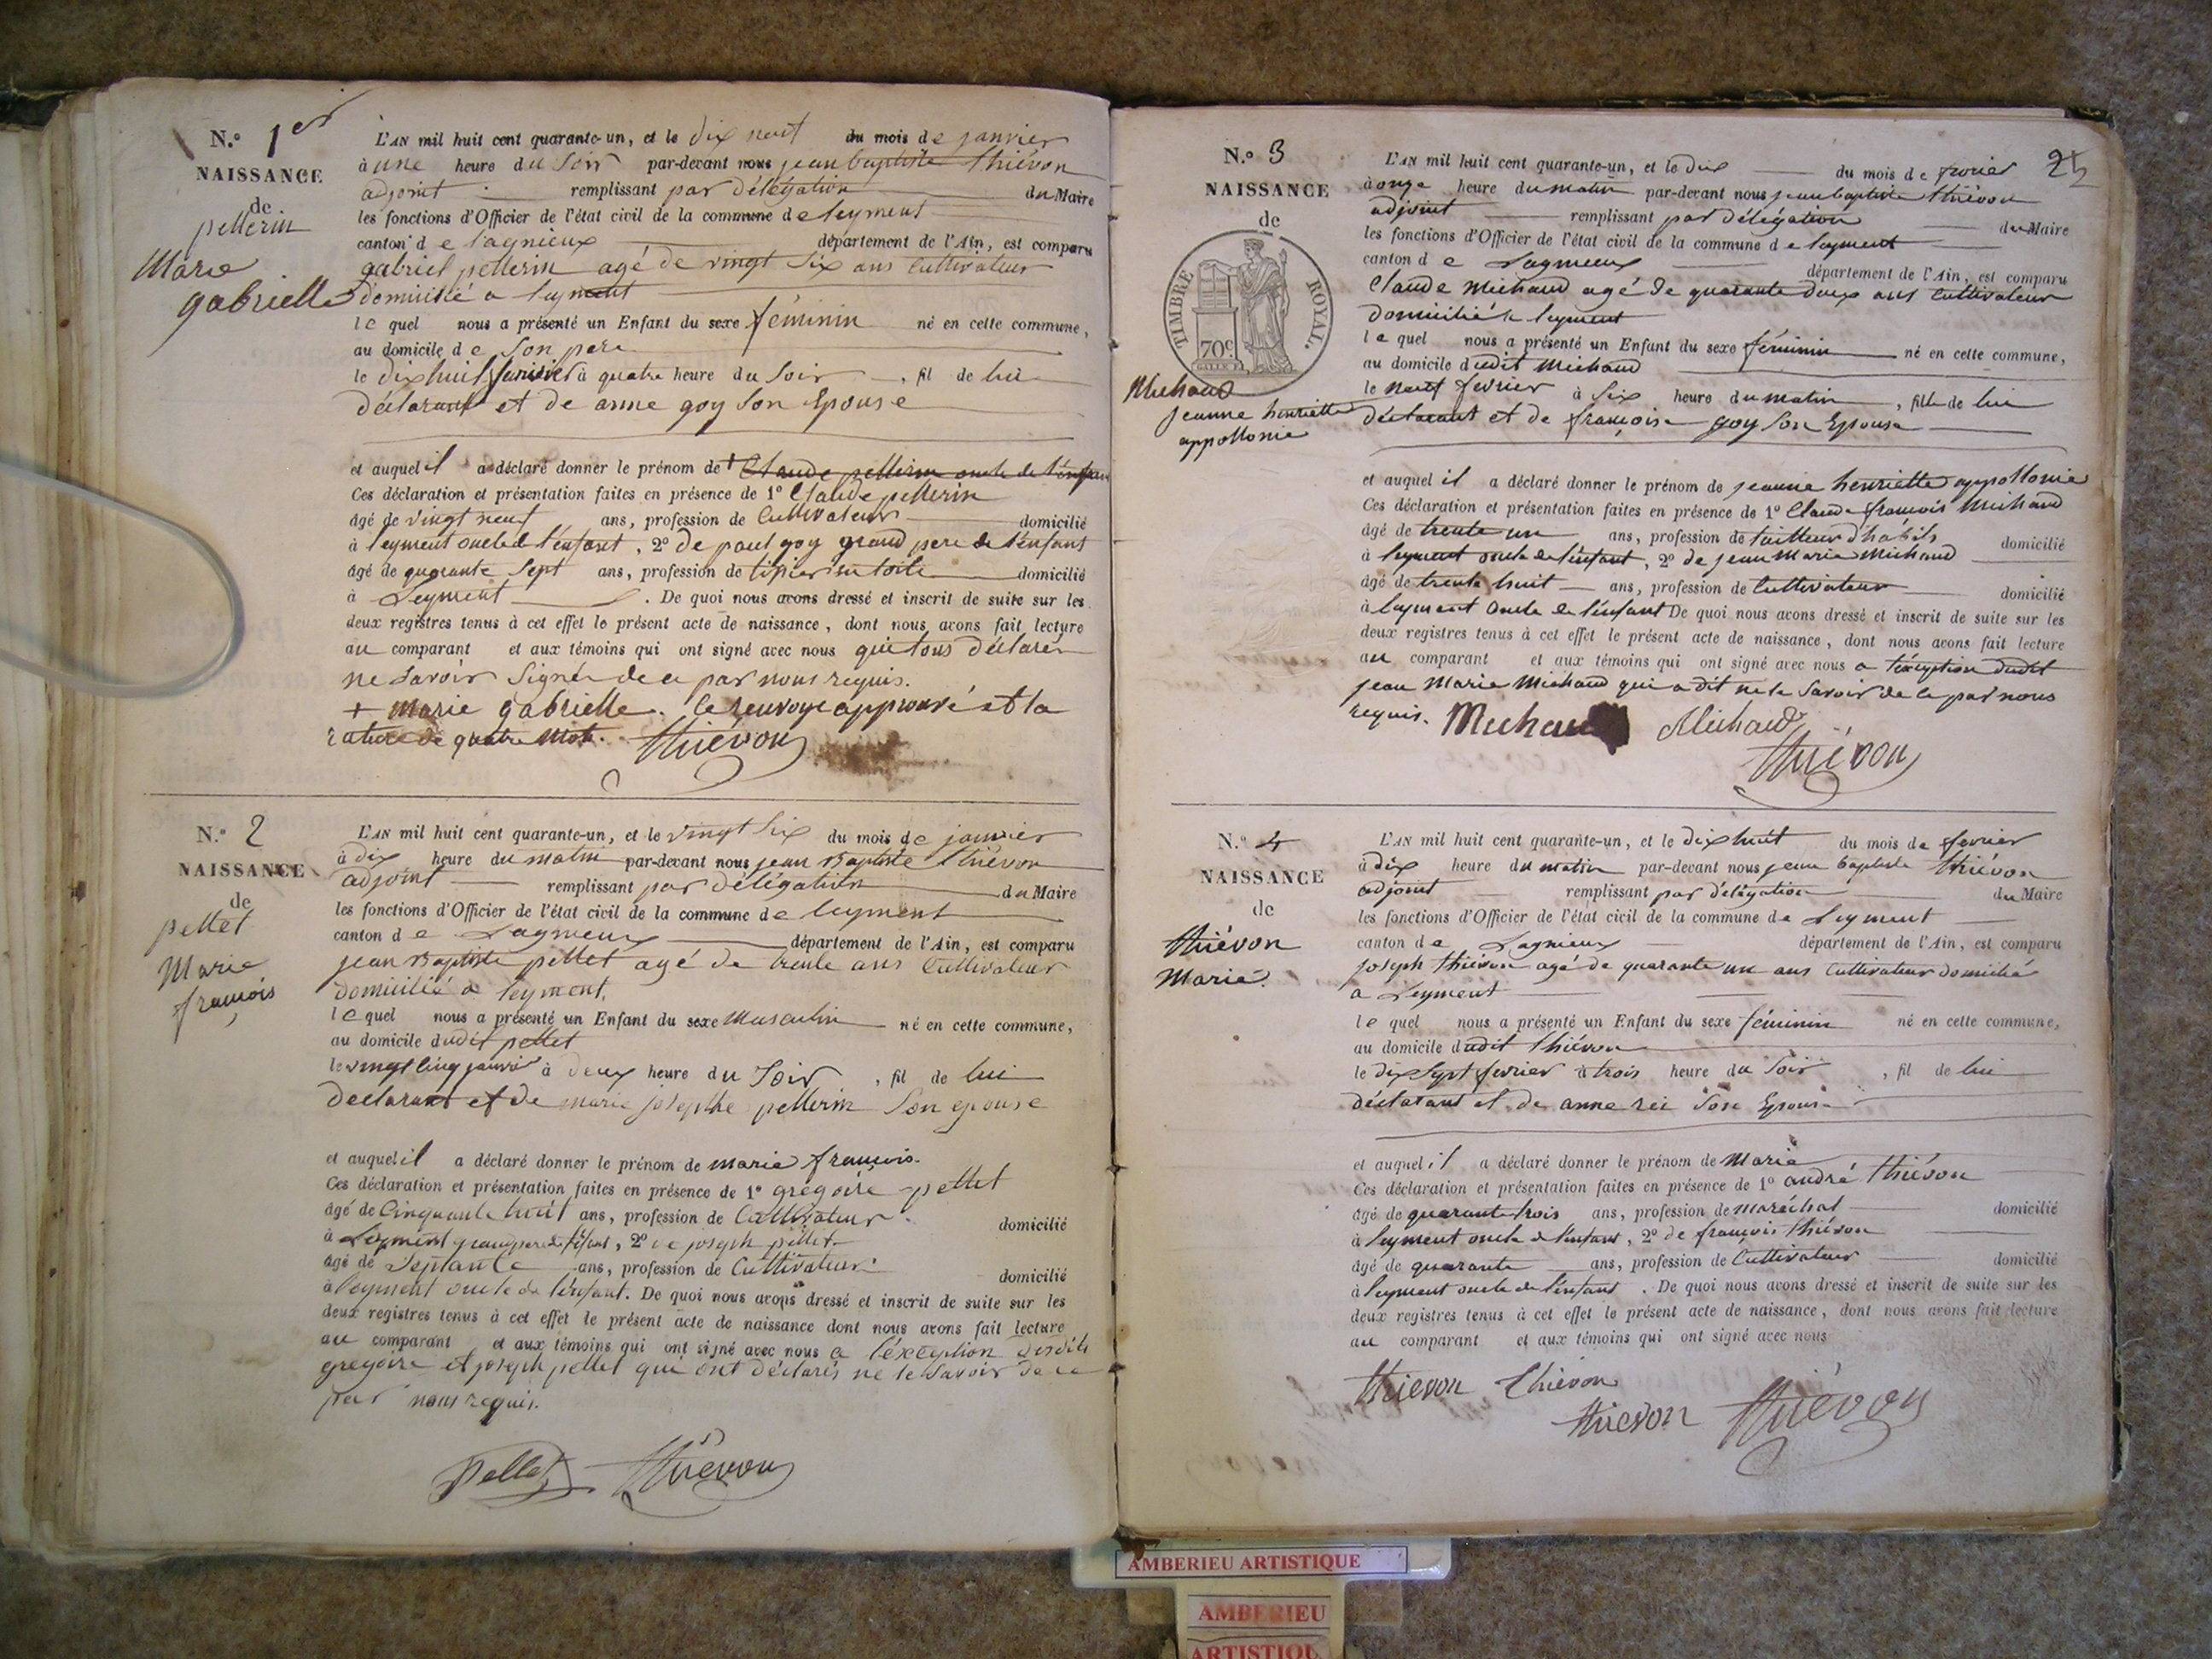 N.º 1er
NAISSANCE
de
pellerin
Marie
gabrielle
L'AN mil huit cent quarante-un, et le dix neuf du mois de janvier
à une heure du Soir par-devant nous jean baptiste thiévon
adjoint remplissant par délégation du Maire
les fonctions d'Officier de l'état civil de la commune de leyment
canton de Lagnieux département de l'Ain, est comparu
gabriel pellerin agé de vingt Six ans Cultivateur
domicilié a leyment
le quel nous a présenté un Enfant du sexe féminin né en cette commune,
au domicile de Son pere
le dix huit janvier à quatre heure du Soir, fil de lui
déclarant et de anne goy Son Epouse
et auquel il a déclaré donner le prénom de + Claude pellerin oncle de l'enfan
Ces déclaration et présentation faites en présence de 1º Claude pellerin
âgé de vingt neuf ans, profession de Cultivateur domicilié
à leyment oncle de l'enfant, 2º de paul goy grand pere de l'enfant
âgé de quarante Sept ans, profession de tissier en toile domicilié
à Leyment. De quoi nous avons dressé et inscrit de suite sur les
deux registres tenus à cet effet le présent acte de naissance, dont nous avons fait lecture
au comparant et aux témoins qui ont signé avec nous qui tous déclaré
ne Savoir Signer de ce par nous requis.
+ Marie gabrielle. le renvoye approuvé et la
rature de quatre mots. thiévon
N.º 2
NAISSANCE
de
pellet
Marie
françois
L'AN mil huit cent quarante-un, et le vingt Six du mois de janvier
à dix heure du matin par-devant nous jean Baptiste thiévon
adjoint remplissant par délégation du Maire
les fonctions d'Officier de l'état civil de la commune de leyment
canton de Lagnieux département de l'Ain, est comparu
jean Baptiste pellet agé de trente ans Cultivateur
domicilié a leyment.
le quel nous a présenté un Enfant du sexe Masculin né en cette commune,
au domicile dudit pellet
le vingt cinq janvier à deux heure du Soir, fil de lui
declarant et de marie josephe pellerin Son epouse
et auquel il a déclaré donner le prénom de marie françois.
Ces déclaration et présentation faites en présence de 1º grégoire pellet
âgé de Cinquante huit ans, profession de Cultivateur. domicilié
à Leyment grand pere de l'enfant, 2º de joseph pellet
âgé de Septante ans, profession de Cultivateur domicilié
à leyment oncle de l'enfant. De quoi nous avons dressé et inscrit de suite sur les
deux registres tenus à cet effet le présent acte de naissance dont nous avons fait lecture
au comparant et aux témoins qui ont signé avec nous a l'éxception desdits
gregoire et joseph pellet qui ont déclarés ne le Savoir de ce
par nous requis.
Pellet thiévon
25
N.º 3
NAISSANCE
de
TIMBRE ROYAL.
70c
Michaud
jeanne henriette
appollonie
L'AN mil huit cent quarante-un, et le dix du mois de fevrier
à onze heure du matin par-devant nous jean baptiste thiévon
adjoint remplissant par délégation du Maire
les fonctions d'Officier de l'état civil de la commune de leyment
canton de Lagnieux département de l'Ain, est comparu
Claude Michaud agé de quarante deux ans Cultivateur
domicilié a leyment
le quel nous a présenté un Enfant du sexe féminin né en cette commune,
au domicile dudit Michaud
le neuf fevrier à Six heure du matin, fille de lui
déclarant et de françoise goy Son Epouse
et auquel il a déclaré donner le prénom de jeanne henriette appollonie
Ces déclaration et présentation faites en présence de 1º Claude françois Michaud
âgé de trente un ans, profession de tailleur d'habits domicilié
à leyment oncle de l'enfant, 2º de jean Marie Michaud
âgé de trente huit ans, profession de Cultivateur domicilié
à leyment oncle de l'enfant De quoi nous avons dressé et inscrit de suite sur les
deux registres tenus à cet effet le présent acte de naissance, dont nous avons fait lecture
au comparant et aux témoins qui ont signé avec nous a l'éxception dudit
jean Marie Michaud qui a dit ne le Savoir de ce par nous
requis. Michaud Michaud
thiévon
N.º 4
NAISSANCE
de
thiévon
Marie.
L'AN mil huit cent quarante-un, et le dix huit du mois de fevrier
à dix heure du matin par-devant nous jean baptiste thiévon
adjoint remplissant par délégation du Maire
les fonctions d'Officier de l'état civil de la commune de Leyment
canton de Lagnieux département de l'Ain, est comparu
joseph thiévon agé de quarante un ans Cultivateur domicilié
a Leyment
le quel nous a présenté un Enfant du sexe féminin né en cette commune,
au domicile dudit thiévon
le dix Sept fevrier à trois heure du Soir, fil de lui
déclarant et de anne rei Son Epouse
et auquel il a déclaré donner le prénom de Marie
Ces déclaration et présentation faites en présence de 1º andré thiévon
âgé de quarante trois ans, profession de maréchal domicilié
à leyment oncle de l'enfant, 2º de françois thiévon
âgé de quarante ans, profession de Cultivateur domicilié
à leyment oncle de l'enfant. De quoi nous avons dressé et inscrit de suite sur les
deux registres tenus à cet effet le présent acte de naissance, dont nous avons fait lecture
au comparant et aux témoins qui ont signé avec nous
thievon thiévon
thievon thiévon
AMBERIEU ARTISTIQUE
AMBERIEU
ARTISTIQU